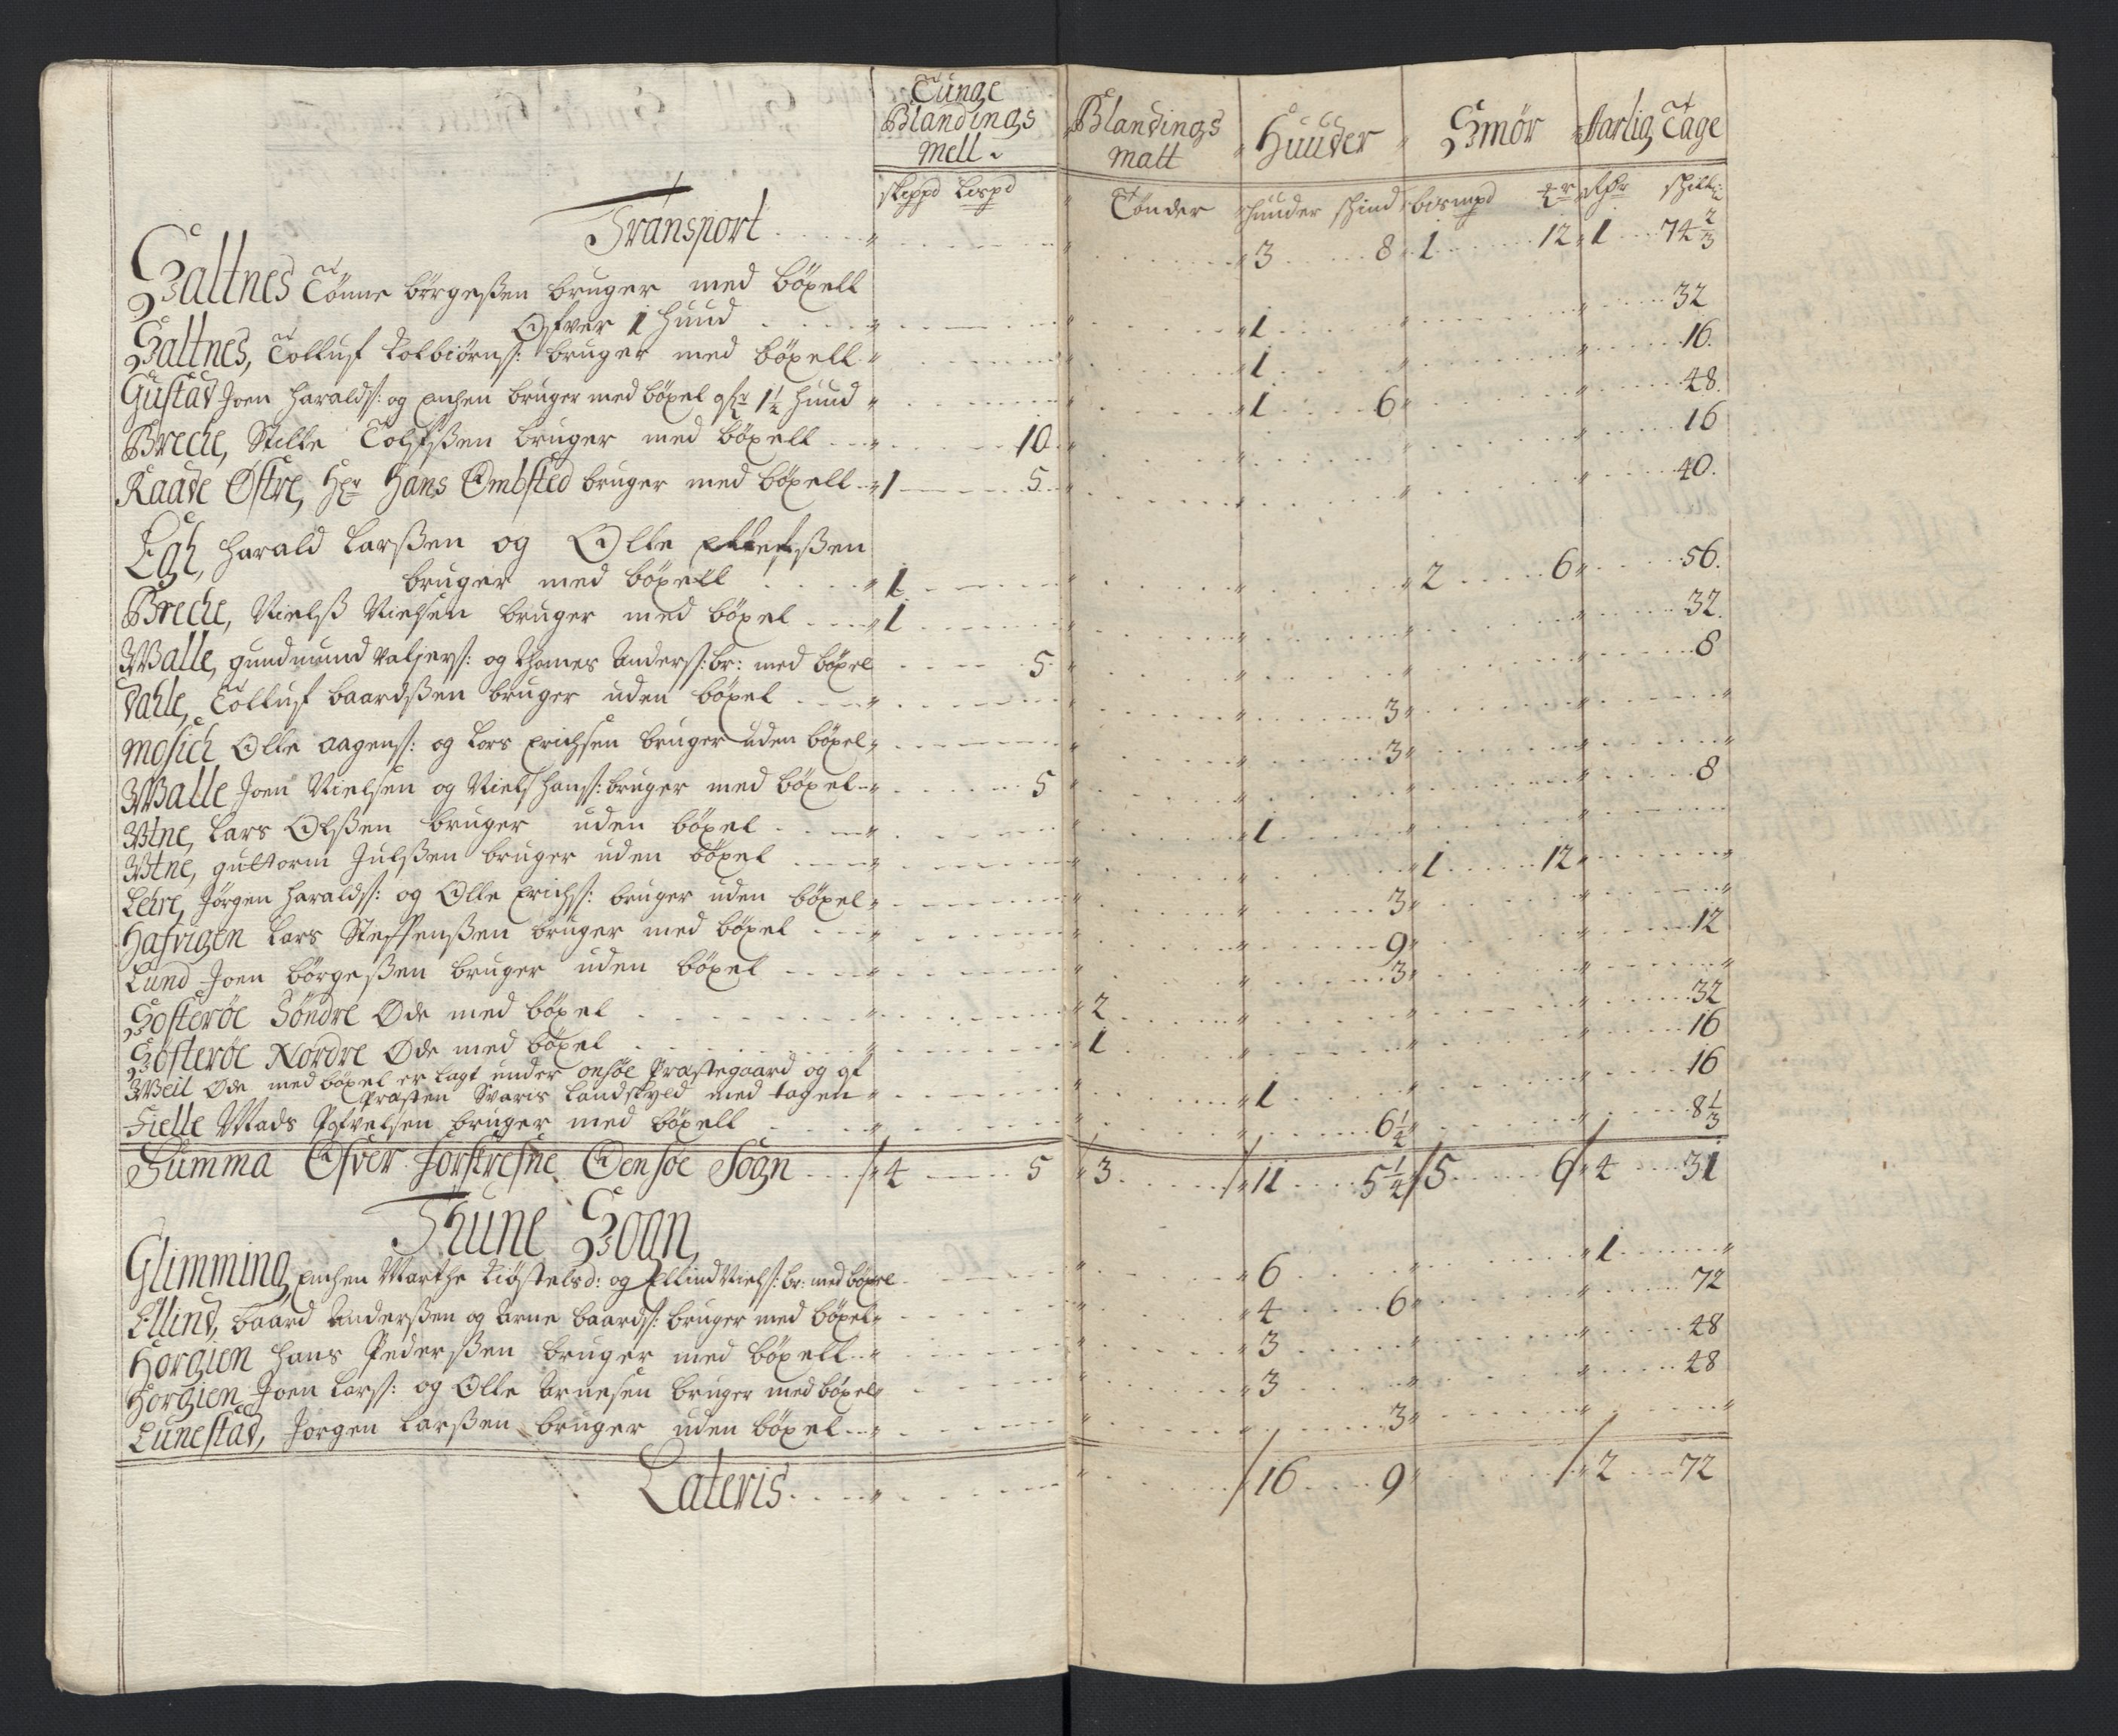 Tunge Blandings Mell. Blandings Malt Huuder Smør Aarlig Tage
skippd Lispd Tønder huuder skind bismpd ℔r Rdr skill:
Transport 3 8 1 12 1 74 2/3
Saltnes Tønne børgeßen bruger med böxell
Ofver 1 huud 1 32
Saltnes, Tolluf Kolbiörns: bruger med böxell 1 16.
Gustad Joen Haralds: og Enchen bruger med böxel ofr 1½ huud 1 6 48.
Breche, Stille Tolfßen bruger med böxell 10 16
Raade Østre, Hr Hans Ombsted bruger med böxell 1 5 40.
Egh, Harald Larßen og Olle
bruger med böxell 1 2 6 56.
Breche, Nielß Nielsen bruger med böxel 1 32.
Walle, gundmund valjers: og thomes Anders: br: med böxel 5 8
Dahle, Tolluf baardßen bruger uden böxel 3
Mosich Olle Aagens: og Lars Erichsen bruger uden böxel 3
Walle Joen Nielsen og Niels Hans: bruger med böxel 5 8
Utne, Lars Olßen bruger uden böxel 1
Utne, guttorm Julßen bruger uden böxel 1 12
Lehre, Jørgen Haralds: og Olle Erichs: bruger uden böxel 3
Hafvigen Lars Steffenßen bruger med böxel 9 12
Lund Joen börgeßen bruger uden böxel 3
Sosterøe Söndre Øde med böxel 2 32
Sosterøe Nordre Øde med böxel 1 16
Weil Øde med böxel er lagt under onsøe Præstegaard og gf
Præsten Svaris Landskyld med tagen 1 16
Fielle Mads Pofvelsen bruger med böxell 6¼ 8⅓
Summa Ofver forskrefne Oensøe Sogn 4 5 3 11 5¼ 5 6 4 31
Thune Sogn
Glimming, Enchen Marthe Kiøstelsd: og Ellind Niels: br: med böxel 6 1
Ellind, baard Anderßen og Arne baards: bruger med böxel 4 6 72
Horgien Hans Pederßen bruger med böxell 3 48
Horgien Joen Lars: og Olle Arnesen bruger med böxel 3 48
Lunestad, Jørgen Larßen bruger uden böxel 3
Lateris 16 9 2 72